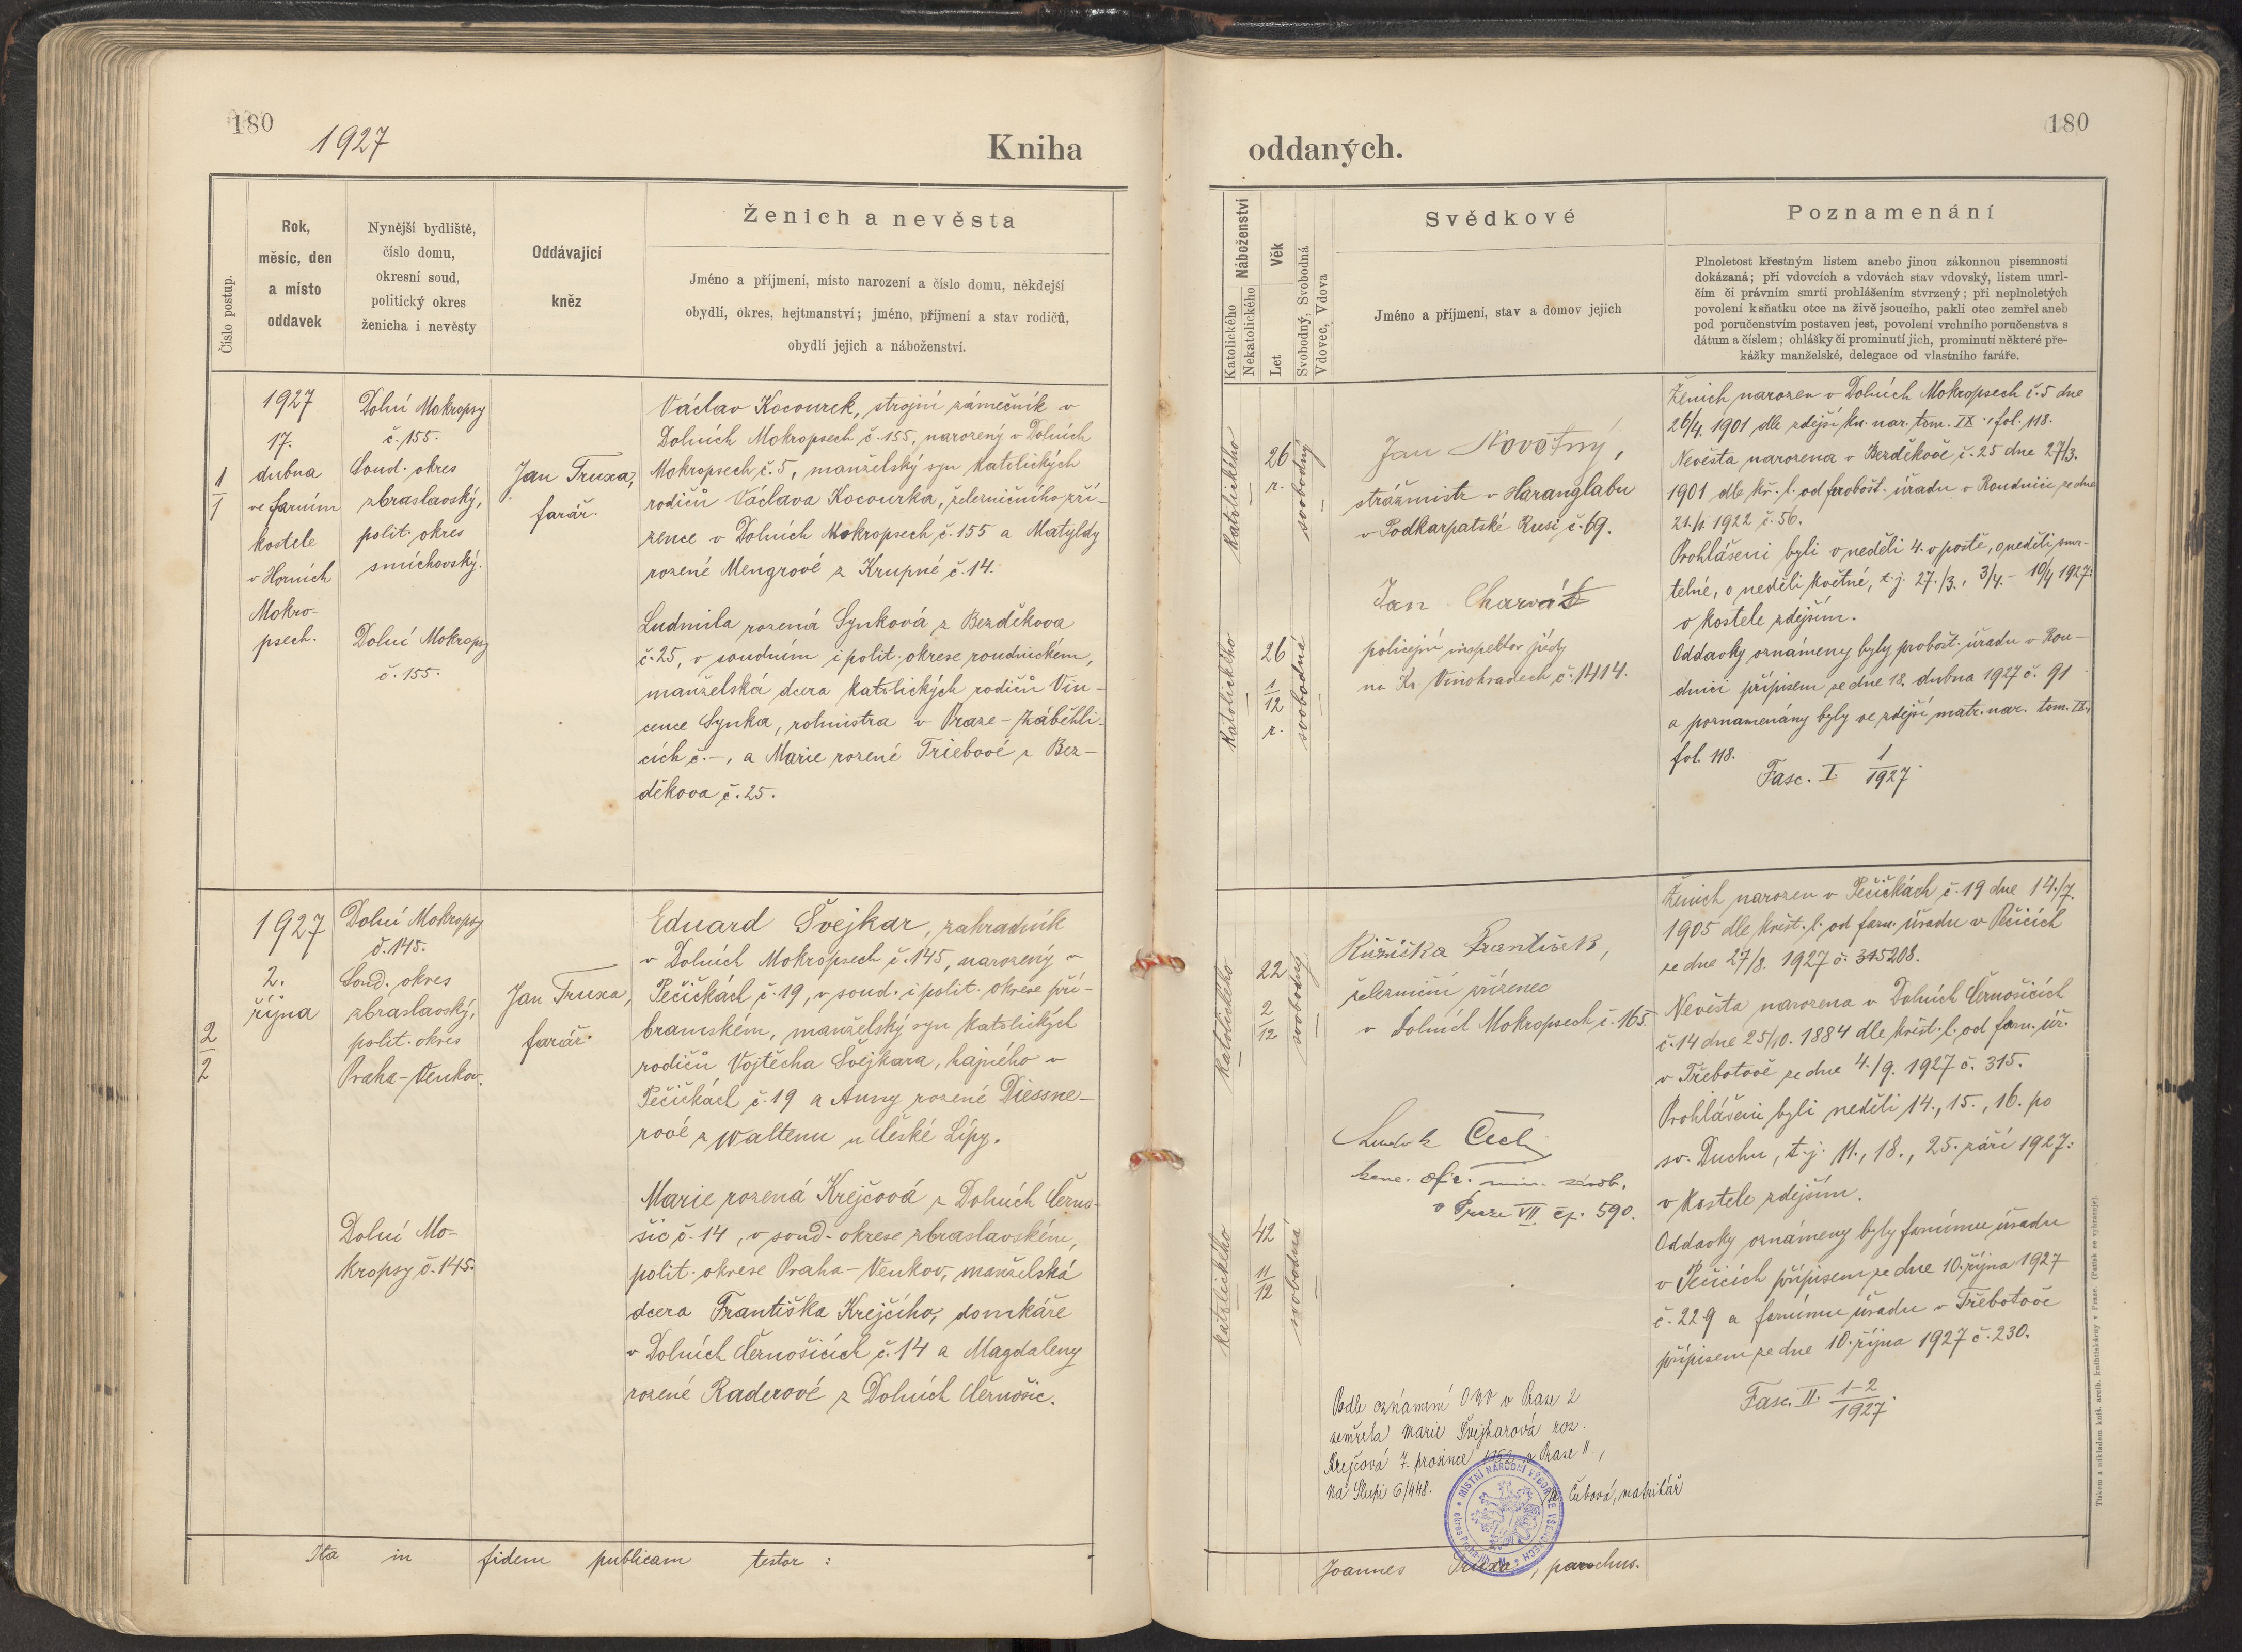 180
1927
Kniha
Číslo postup.
Rok,
měsíc, den
a místo
oddavek
Nynější bydliště,
číslo domu,
okresní soud,
politický okres
ženicha i nevěsty
Oddávající
kněz
Ženich a nevěsta
Jméno a příjmení, místo narození a číslo domu, někdejší
obydlí, okres, hejtmanství; jméno, příjmení a stav rodičů,
obydlí jejich a náboženství.
1
1
1927
17.
dubna
ve farním
kostele
v Horních
Mokro-
psech.
Dolní Mokropsy
č. 155.
Soud. okres
zbraslavský,
polit. okres
smíchovský.
Dolní Mokropsy
č. 155.
Jan Truxa,
farář.
Václav Kocourek, strojní zámečník v
Dolních Mokropsech č. 155, narozený v Dolních
Mokropsech č. 5, manželský syn katolických
rodičů Václava Kocourka, železničního zří-
zence v Dolních Mokropsech č. 155 a Matyldy
rozené Mengrové z Krupné č. 14.
Ludmila rozená Synková z Bezděkova
č. 25, v soudním i polit. okrese roudnickém,
manželská dcera katolických rodičů Vin-
cence Synka, rotmistra v Praze - Záběhli-
cích č. -, a Marie rozené Triebové z Bez-
děkova č. 25.
2
2
1927
2.
října
Dolní Mokropsy
č. 145.
Soud. okres
zbraslavský,
polit. okres
Praha - Venkov.
Dolní Mo-
kropsy č. 145.
Jan Truxa,
farář.
Eduard Švejkar, zahradník
v Dolních Mokropsech č. 145, narozený v
Pečičkách č. 19, v soud. i polit. okrese pří-
bramském, manželský syn katolických
rodičů Vojtěcha Švejkara, hajného v
Pečičkách č. 19 a Anny rozené Diessne-
rové z Waltenu u České Lípy.
Marie rozená Krejčová z Dolních Černo-
šic č. 14, v soud. okrese zbraslavském,
polit. okrese Praha - Venkov, manželská
dcera Františka Krejčího, domkáře
v Dolních Černošicích č. 14 a Magdaleny
rozené Raderové z Dolních Černošic.
Ita in fidem publicam testor :
180
oddaných.
Náboženství
Katolického
Nekatolického
Věk
Let
Svobodný, Svobodná
Vdovec, Vdova
Svědkové
Jméno a příjmení, stav a domov jejich
Poznamenání
Plnoletost křestným listem anebo jinou zákonnou písemností
dokázaná; při vdovcích a vdovách stav vdovský, listem umrl-
čím či právním smrti prohlášením stvrzený; při neplnoletých
povolení k sňatku otce na živě jsoucího, pakli otec zemřel aneb
pod poručenstvím postaven jest, povolení vrchního poručenstva s
dátum a číslem; ohlášky či prominutí jich, prominutí některé pře-
kážky manželské, delegace od vlastního faráře.
katolického
26
r.
svobodný
katolického
26
1
12
r.
svobodná
Jan Novotný,
strážmistr v Haranglabu
v Podkarpatské Rusi č. 69.
Jan Charvát
policejní inspektor jízdy
na Kr. Vinohradech č. 1414.
Ženich narozen v Dolních Mokropsech č. 5 dne
26/4. 1901 dle zdejší kn. nar. tom. IX., fol. 118.
Nevěsta narozena v Bezděkově č. 25 dne 27/3.
1901 dle kř. l. od probošt. úřadu v Roudnici ze dne
21./1. 1922 č. 56.
Prohlášeni byli v neděli 4. v postě, v neděli smr-
telné, v neděli květné, t. j. 27./3., 3/4. - 10/4 1927:
v kostele zdejším.
Oddavky oznámeny byly probošt. úřadu v Rou-
dnici přípisem ze dne 18. dubna 1927 č. 91
a poznamenány byly ve zdejší matr. nar. tom. IX.,
fol. 118.
Fasc. I. 1
1927.
katolického
22
2
12
svobodný
katolického
42
11
12
svobodná
Růžička František,
železniční zřízenec
v Dolních Mokropsech č. 165.
v Praze VII čp. 590.
Ženich narozen v Pečičkách č. 19 dne 14./7.
1905 dle křest. l. od farn. úřadu v Pečicích
ze dne 27/8. 1927 č. 315208.
Nevěsta narozena v Dolních Černošicích
č. 14 dne 25/10. 1884 dle křest. l. od farn. úř.
v Třebotově ze dne 4./9. 1927 č. 315.
Prohlášeni byli neděli 14., 15., 16. po
sv. Duchu, t. j. 11., 18., 25. září 1927:
v kostele zdejším.
Oddavky oznámeny byly farnímu úřadu
v Pečicích přípisem ze dne 10. října 1927
č. 229 a farnímu úřadu v Třebotově
přípisem ze dne 10. října 1927 č. 230.
Fasc. II. 1-2
1927.
Podle oznámení ONV v Praze 2
zemřela Marie Švejkarová roz.
Krejčová 7. prosince v Praze II.,
Na Slupi 6/448.
Čubová, matrikář
MÍSTNÍ NÁRODNÍ VÝBOR VE VŠENORECH
Joannes Truxa, parochus.
Tiskem a nákladem kníž. arcib. knihtiskárny v Praze. (Patisk se vyhrazuje).